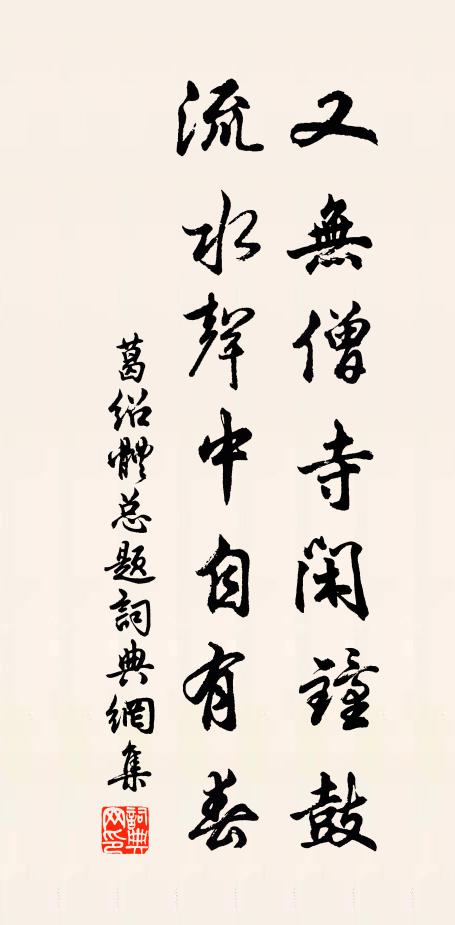 又無僧寺閑鐘鼓
流水聲中自有春
葛绍體总题詞典網集
詞典網印